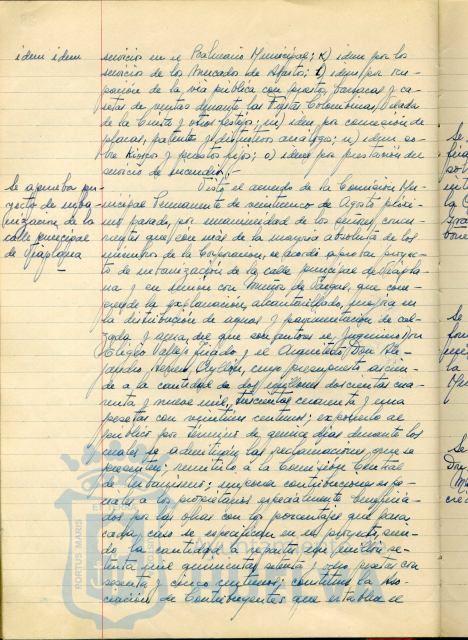 idem idem
servicios en el Balneario Municipal; k) idem por los
servicios de los Mercados de Abastos; l) idem por ocu-
pación de la vía pública con puestos, barracas y ca-
setas de ventas durante las Fiestas Colombinas, Velada
de la Cinta y otros festejos; m) idem por concesión de
placas, patentes y distintivos análogos; n) idem so-
bre kioscos y puestos fijos; o) idem por prestación del
servicio de incendios.-
Se aprueba pro-
yecto de urba-
nización de la
calle principal
de Tráplana
Visto el acuerdo de la Comisión Mu-
nicipal Permanente de veinticinco de Agosto próxi-
mo pasado, por unanimidad de los señores concu-
rrentes que són más de la mayoría absoluta de los
miembros de la Corporación, se acordó aprobar proyec-
to de urbanización de la calle principal de
y en unión con Muñoz de Vargas, que com-
prende la explanación, alcantarillado, mejora en
la distribución de aguas y pavimentación de cal-
zada y acera, del que son autores el Ingeniero Don
Vallejo
y el Arquitecto Don Ale-
jandro Herrero Ayllón, cuyo presupuesto ascien-
de a la cantidad de dos millones doscientas cua-
renta y nueve mil, trescientas cuarenta y una
pesetas con veintiun centimos; exponerlo al
público por término de quince días durante los
cuales se admitirán las reclamaciones que se
presenten; remitirlo a la Comisión Central
de Urbanismo; imponer contribuciones espe-
ciales a los propietarios especialmente beneficia-
dos por las obras con los porcentajes que para
cada caso se especifican en el proyecto, sien-
do la cantidad a repartir un millon se-
tenta y
mil quinientas setenta y ocho pesetas con
sesenta y cinco centimos; constituir la Aso-
ciación de Contribuyentes que establece el
PORTUS MARIS